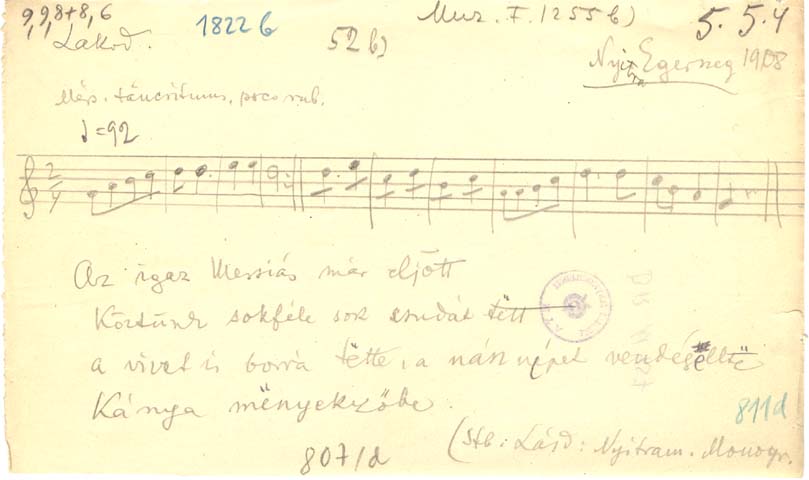 9,9,8+8,6
1822 b
Muz. F. 1255 b)
5. 5. 4
Lakod.
52 b)
Nyitra Egerszeg 1908
Mérs. táncritmus, poco rub.
♩=92
2/4
Az igaz Messiás már eljött
Köztünk sokféle sok csudát tëtt
a vizet is borrá tëtte, a násznépet vendégëltë
Kánya mënyekzőbe.
811d
807/d
(Stb: Lásd: Nyitram. Monogr.